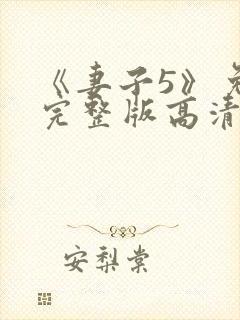 《妻子5》免
完整版高清
安梨棠